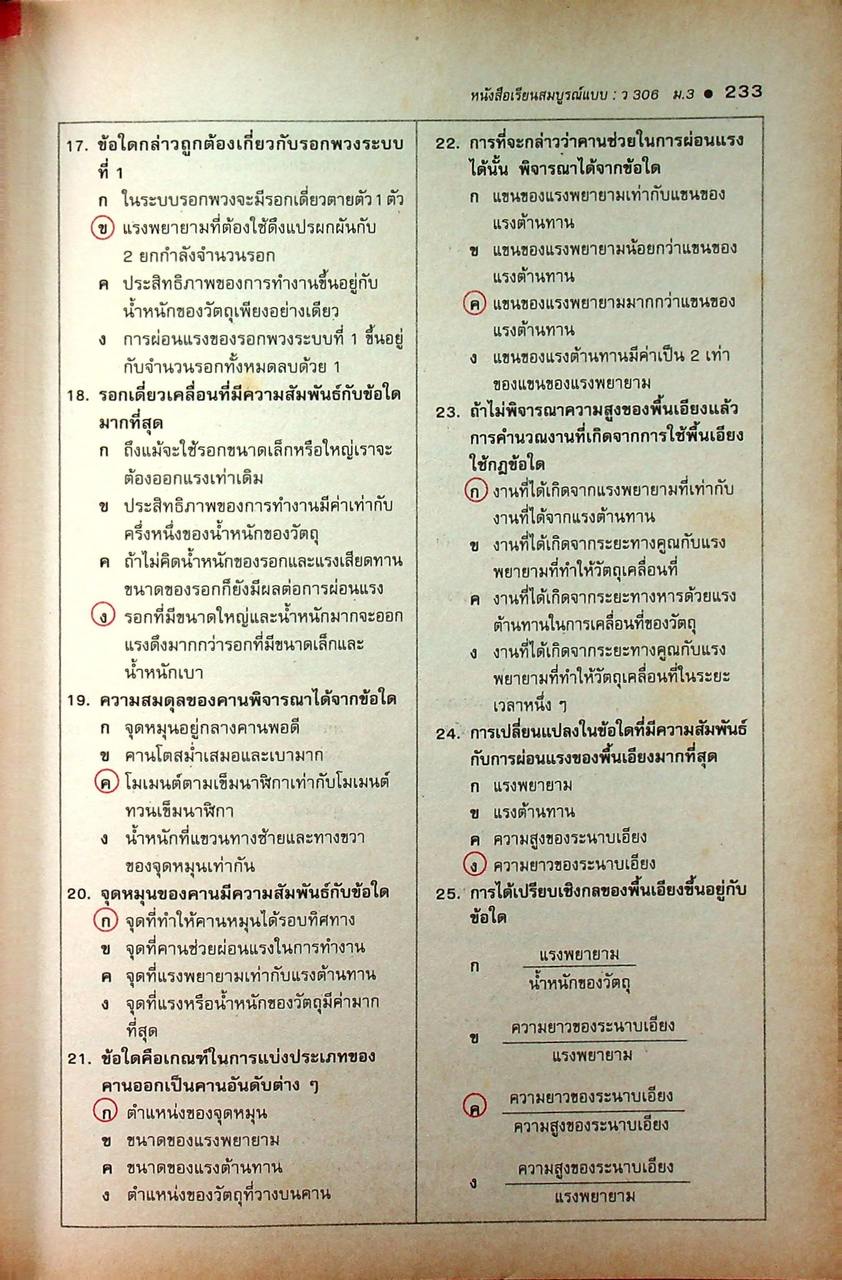 หนังสือเรียนสมบูรณ์แบบ : ว 306 ม.3 ● 233
17. ข้อใดกล่าวถูกต้องเกี่ยวกับรอกพวงระบบ
ที่ 1
ก ในระบบรอกพวงจะมีรอกเดี่ยวตายตัว 1 ตัว
ข แรงพยายามที่ต้องใช้ดึงแปรผกผันกับ
2 ยกกำลังจำนวนรอก
ค ประสิทธิภาพของการทำงานขึ้นอยู่กับ
น้ำหนักของวัตถุเพียงอย่างเดียว
ง การผ่อนแรงของรอกพวงระบบที่ 1 ขึ้นอยู่
กับจำนวนรอกทั้งหมดลบด้วย 1
18. รอกเดี่ยวเคลื่อนที่มีความสัมพันธ์กับข้อใด
มากที่สุด
ก ถึงแม้จะใช้รอกขนาดเล็กหรือใหญ่เราจะ
ต้องออกแรงเท่าเดิม
ข ประสิทธิภาพของการทำงานมีค่าเท่ากับ
ครึ่งหนึ่งของน้ำหนักของวัตถุ
ค ถ้าไม่คิดน้ำหนักของรอกและแรงเสียดทาน
ขนาดของรอกก็ยังมีผลต่อการผ่อนแรง
ง รอกที่มีขนาดใหญ่และน้ำหนักมากจะออก
แรงดึงมากกว่ารอกที่มีขนาดเล็กและ
น้ำหนักเบา
19. ความสมดุลของคานพิจารณาได้จากข้อใด
ก จุดหมุนอยู่กลางคานพอดี
ข คานโตสม่ำเสมอและเบามาก
ค โมเมนต์ตามเข็มนาฬิกาเท่ากับโมเมนต์
ทวนเข็มนาฬิกา
ง น้ำหนักที่แขวนทางซ้ายและทางขวา
ของจุดหมุนเท่ากัน
20. จุดหมุนของคานมีความสัมพันธ์กับข้อใด
ก จุดที่ทำให้คานหมุนได้รอบทิศทาง
ข จุดที่คานช่วยผ่อนแรงในการทำงาน
ค จุดที่แรงพยายามเท่ากับแรงต้านทาน
ง จุดที่แรงหรือน้ำหนักของวัตถุมีค่ามาก
ที่สุด
21. ข้อใดคือเกณฑ์ในการแบ่งประเภทของ
คานออกเป็นคานอันดับต่าง ๆ
ก ตำแหน่งของจุดหมุน
ข ขนาดของแรงพยายาม
ค ขนาดของแรงต้านทาน
ง ตำแหน่งของวัตถุที่วางบนคาน
22. การที่จะกล่าวว่าคานช่วยในการผ่อนแรง
ได้นั้น พิจารณาได้จากข้อใด
ก แขนของแรงพยายามเท่ากับแขนของ
แรงต้านทาน
ข แขนของแรงพยายามน้อยกว่าแขนของ
แรงต้านทาน
ค แขนของแรงพยายามมากกว่าแขนของ
แรงต้านทาน
ง แขนของแรงต้านทานมีค่าเป็น 2 เท่า
ของแขนของแรงพยายาม
23. ถ้าไม่พิจารณาความสูงของพื้นเอียงแล้ว
การคำนวณงานที่เกิดจากการใช้พื้นเอียง
ใช้กฎข้อใด
ก งานที่ได้เกิดจากแรงพยายามที่เท่ากับ
งานที่ได้จากแรงต้านทาน
ข งานที่ได้เกิดจากระยะทางคูณกับแรง
พยายามที่ทำให้วัตถุเคลื่อนที่
ค งานที่ได้เกิดจากระยะทางหารด้วยแรง
ต้านทานในการเคลื่อนที่ของวัตถุ
ง งานที่ได้เกิดจากระยะทางคูณกับแรง
พยายามที่ทำให้วัตถุเคลื่อนที่ในระยะ
เวลาหนึ่ง ๆ
24. การเปลี่ยนแปลงในข้อใดที่มีความสัมพันธ์
กับการผ่อนแรงของพื้นเอียงมากที่สุด
ก แรงพยายาม
ข แรงต้านทาน
ค ความสูงของระนาบเอียง
ง ความยาวของระนาบเอียง
25. การได้เปรียบเชิงกลของพื้นเอียงขึ้นอยู่กับ
ข้อใด
ก แรงพยายาม
น้ำหนักของวัตถุ
ข ความยาวของระนาบเอียง
แรงพยายาม
ค ความยาวของระนาบเอียง
ความสูงของระนาบเอียง
ง ความสูงของระนาบเอียง
แรงพยายาม